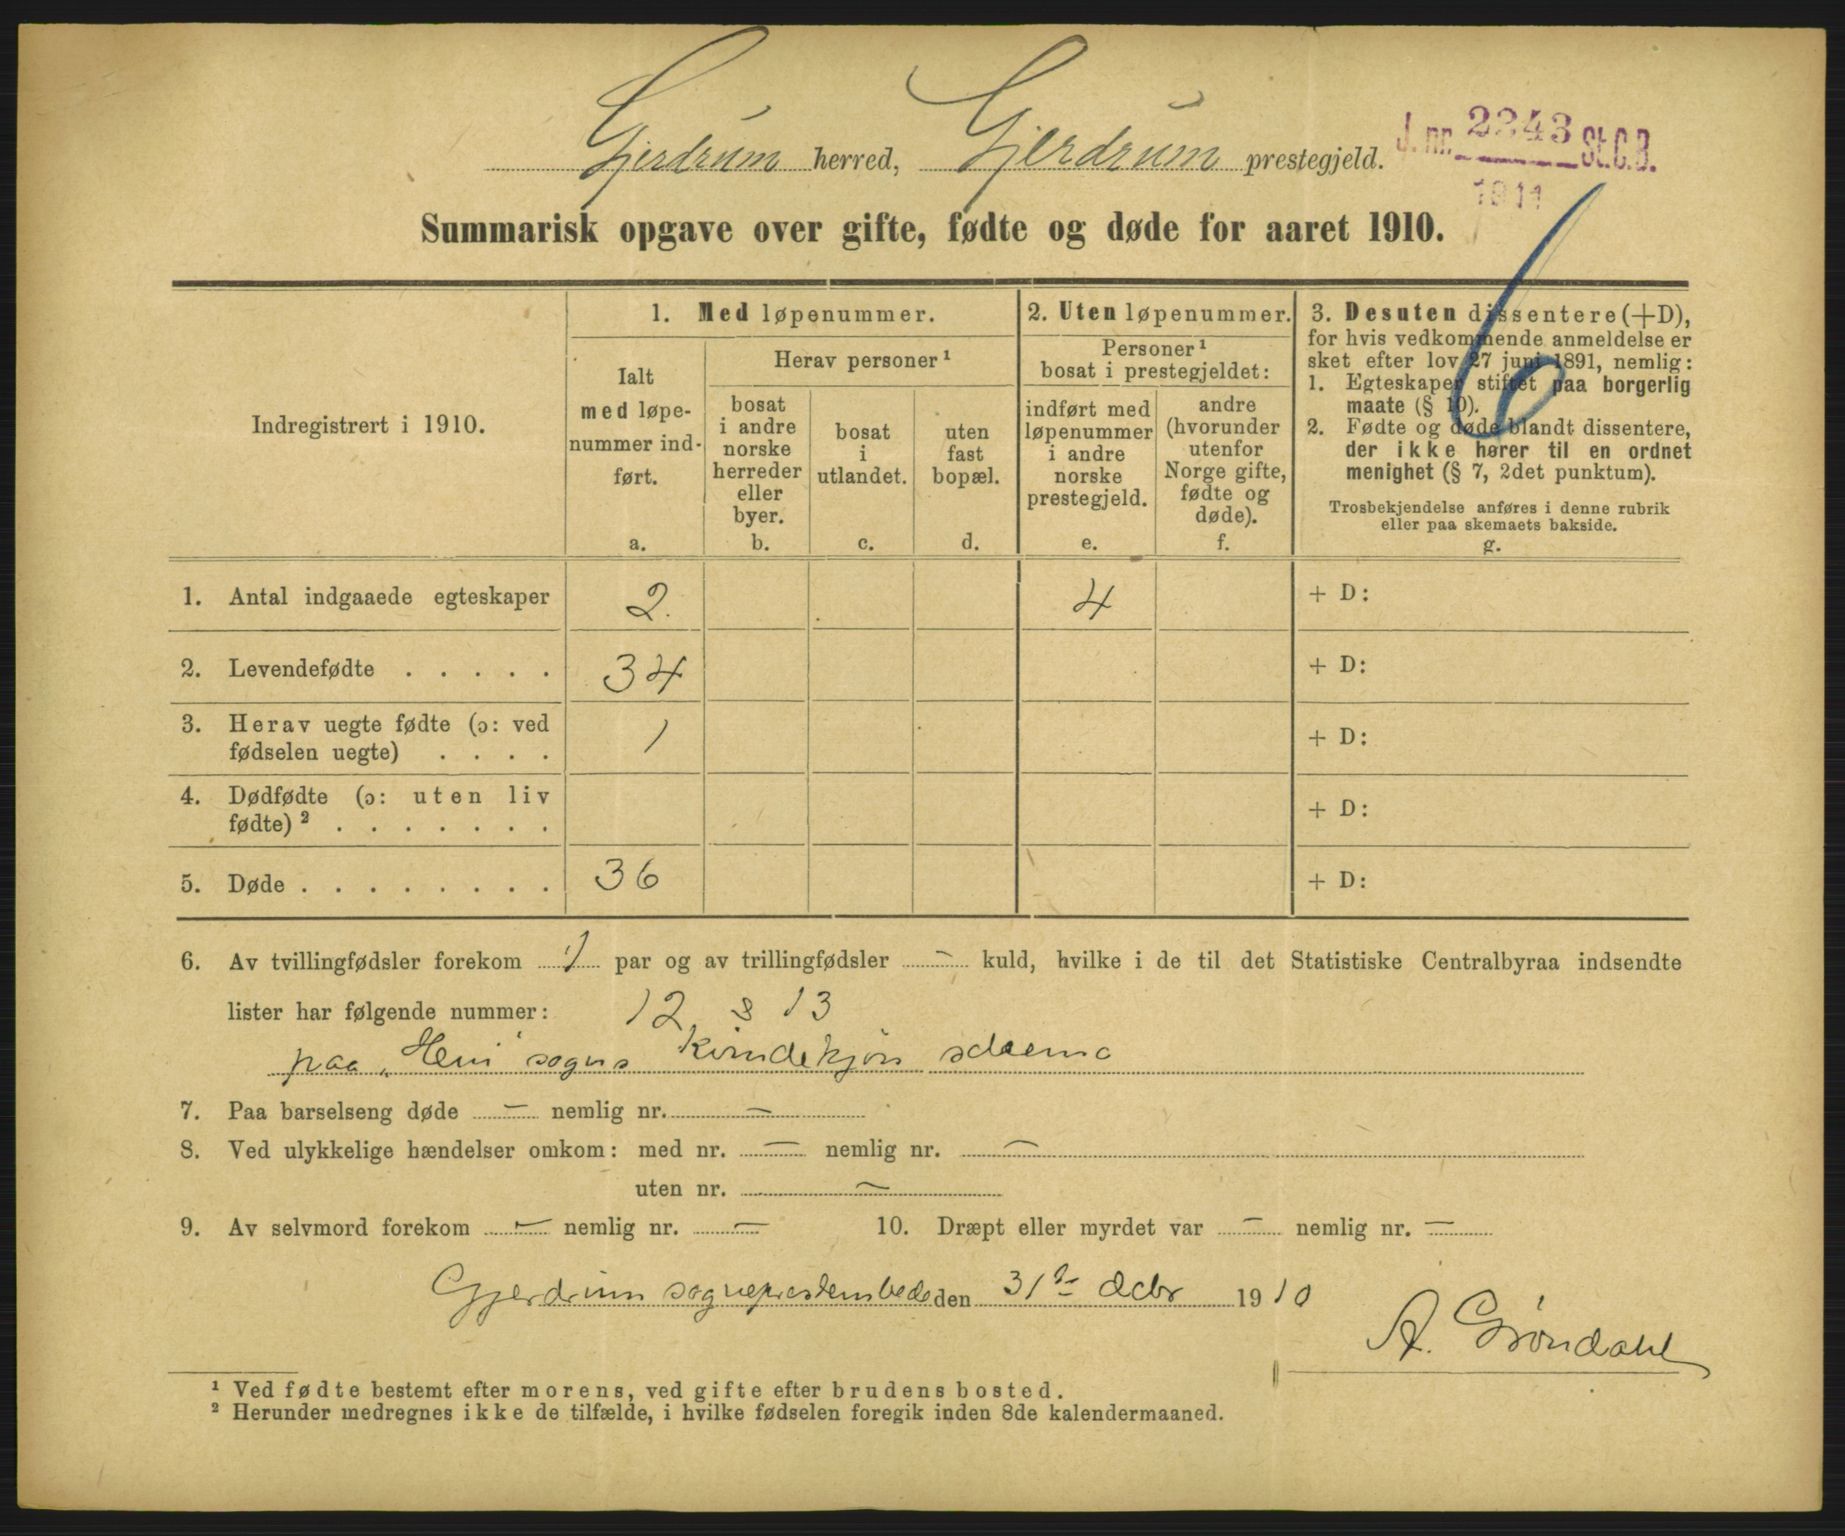 Gjerdrum herred, Gjerdrum prestegjeld.
J. nr. 2243 St.C.B.
1911
Summarisk opgave over gifte, fødte og døde for aaret 1910.
Indregistrert i 1910.
1. Med løpenummer.
Ialt
med løpe-
nummer ind-
ført.
a.
Herav personer ¹
bosat
i andre
norske
herreder
eller
byer.
b.
bosat
i
utlandet.
c.
uten
fast
bopæl.
d.
2. Uten løpenummer.
Personer ¹
bosat i prestegjeldet:
indført med
løpenummer
i andre
norske
prestegjeld.
e.
andre
(hvorunder
utenfor
Norge gifte,
fødte og
døde).
f.
3. Desuten dissentere (+D),
for hvis vedkommende anmeldelse er
sket efter lov 27 juni 1891, nemlig:
1. Egteskaper stiftet paa borgerlig
maate (§ 10).
2. Fødte og døde blandt dissentere,
der ikke hører til en ordnet
menighet (§ 7, 2det punktum).
Trosbekjendelse anføres i denne rubrik
eller paa skemaets bakside.
g.
1. Antal indgaaede egteskaper 2. 4 + D:
2. Levendefødte . . . . . 34 + D:
3. Herav uegte fødte (ɔ: ved
fødselen uegte) . . . . 1 + D:
4. Dødfødte (ɔ: uten liv
fødte) ² . . . . . . . + D:
5. Døde . . . . . . . . . 36 + D:
6. Av tvillingfødsler forekom 1 par og av trillingfødsler — kuld, hvilke i de til det Statistiske Centralbyraa indsendte
lister har følgende nummer: 12 & 13
paa "Heni" sogns Kvindekjøn schema
7. Paa barselseng døde — nemlig nr. —
8. Ved ulykkelige hændelser omkom: med nr. — nemlig nr. —
uten nr. —
9. Av selvmord forekom — nemlig nr. — 10. Dræpt eller myrdet var — nemlig nr. —
Gjerdrum sogneprestembede den 31te decbr 1910
A. Grøndahl
¹ Ved fødte bestemt efter morens, ved gifte efter brudens bosted.
² Herunder medregnes ikke de tilfælde, i hvilke fødselen foregik inden 8de kalendermaaned.